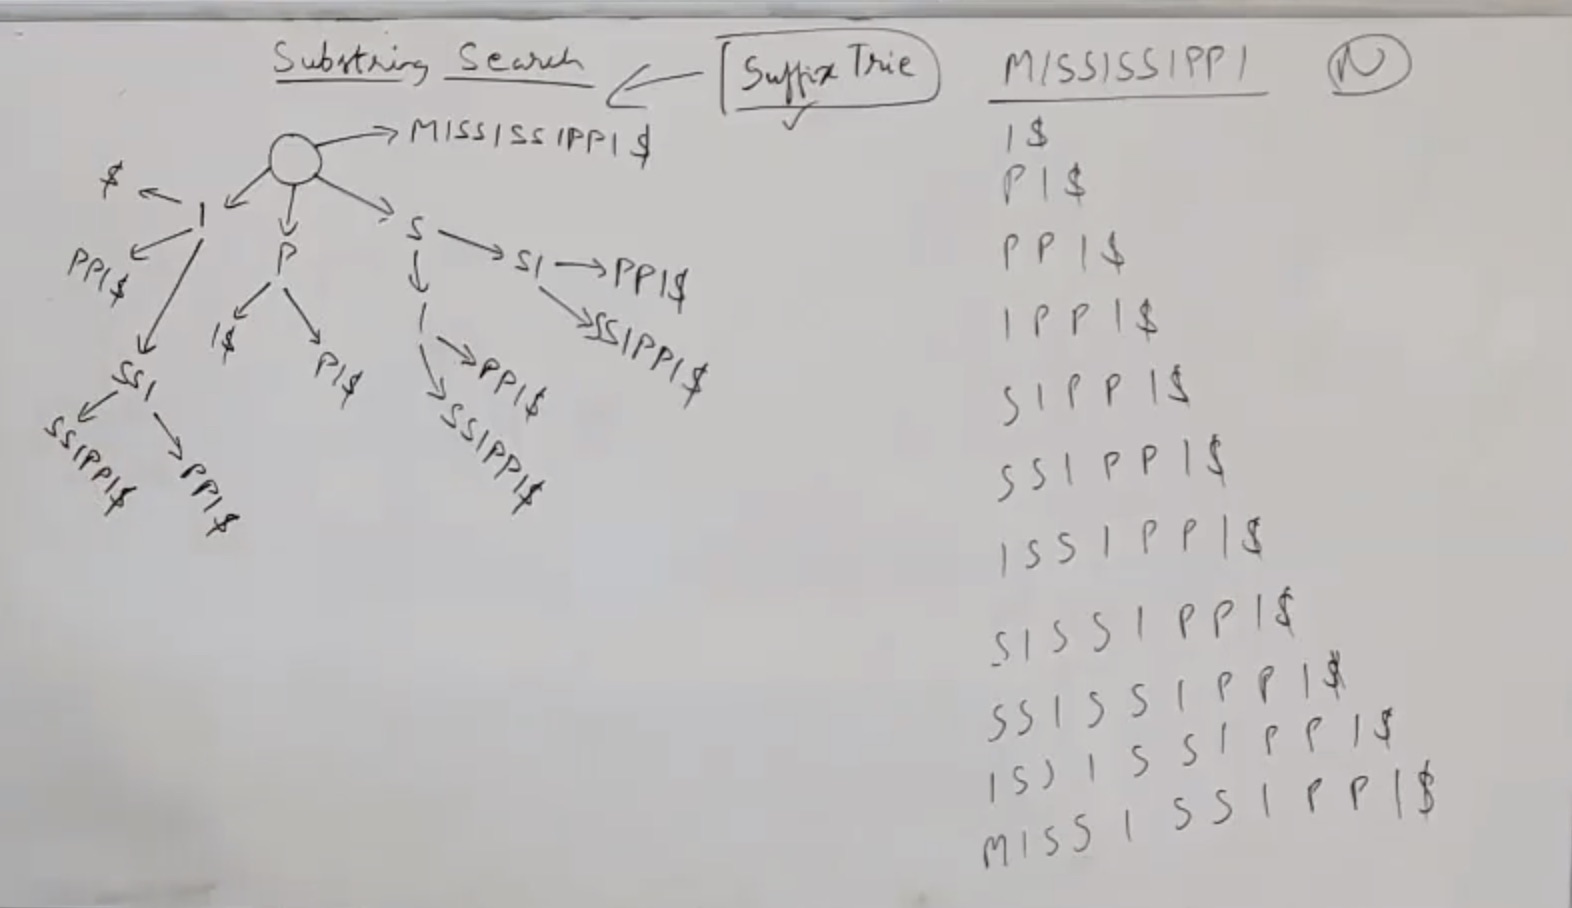 Substring Search
Suffix Trie
MISSISSIPPI
N
MISSISSIPPI$
$
I
PPI$
SSI
SSIPPI$
PPI$
P
I$
PI$
S
SI
PPI$
SSIPPI$
I
PPI$
SSIPPI$
I$
PI$
PPI$
IPPI$
SIPPI$
SSIPPI$
ISSIPPI$
SISSIPPI$
SSISSIPPI$
ISSISSIPPI$
MISSISSIPPI$